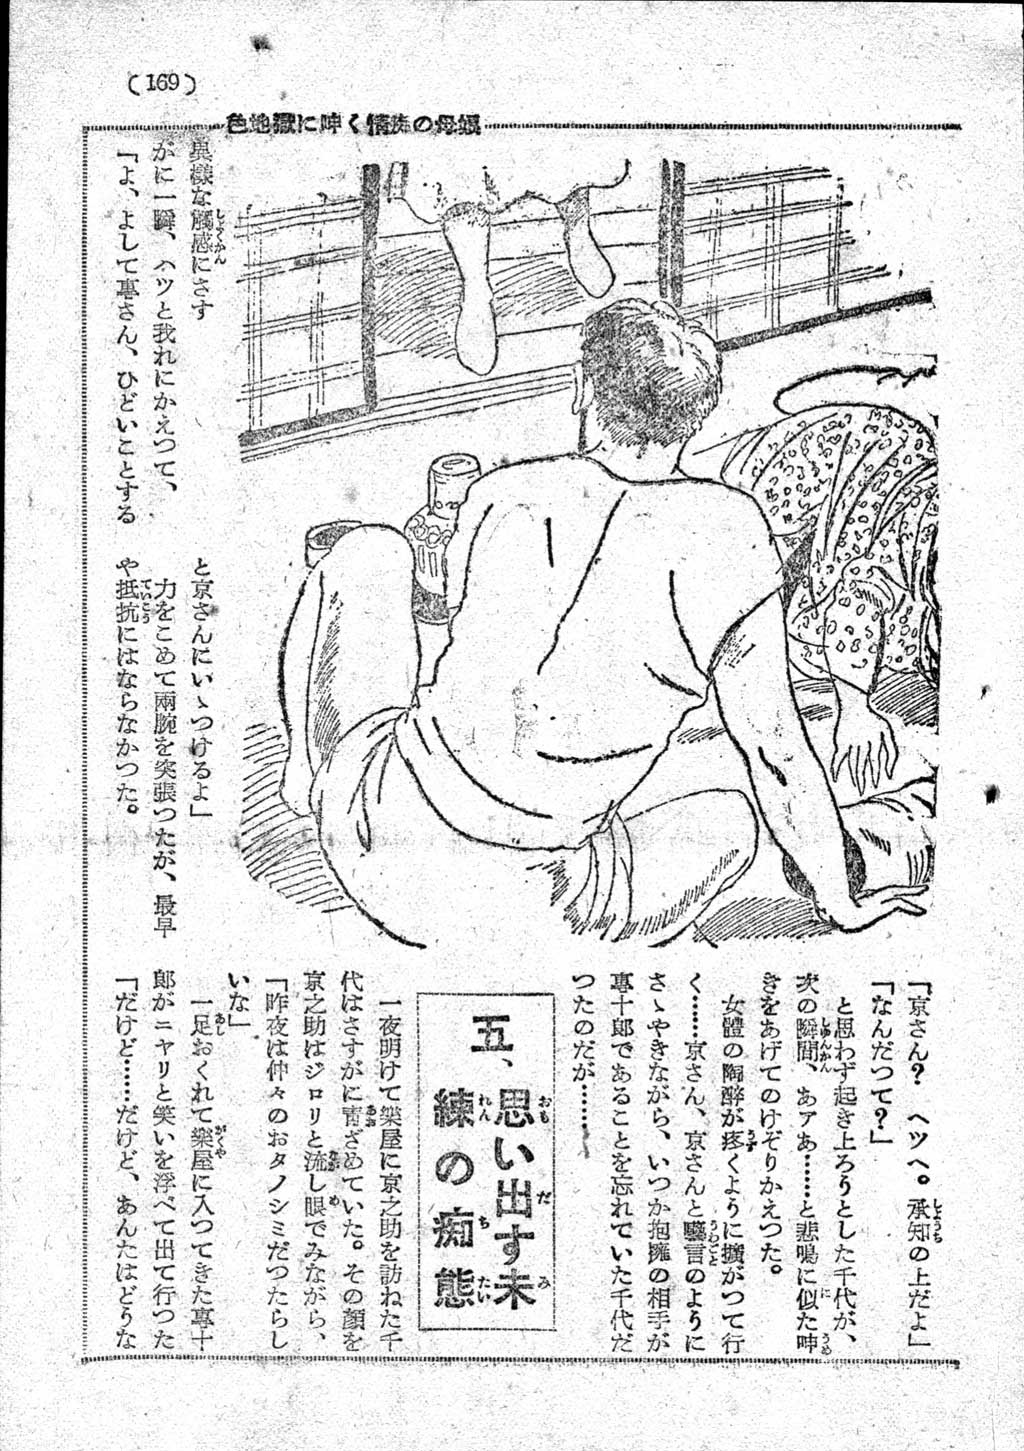 (169)
色地獄に呻く情痴の母娘
異様な觸感にさす
がに一瞬、ハツと我れにかえつて、
「よ、よして專さん、ひどいことする
と京さんにいゝつけるよ」
力をこめて兩腕を突張つたが、最早
や抵抗にはならなかつた。
「京さん? ヘツヘ。承知の上だよ」
「なんだつて?」
と思わず起き上ろうとした千代が、
次の瞬間、あァあ……と悲鳴に似た呻
きをあげてのけぞりかえつた。
女體の陶醉が疼くように擴がつて行
く……京さん、京さんと囈言のように
さゝやきながら、いつか抱擁の相手が
專十郎であることを忘れていた千代だ
つたのだが………
五、思い出す未
練の痴態
一夜明けて樂屋に京之助を訪ねた千
代はさすがに靑ざめていた。その顏を
京之助はジロリと流し眼でみながら、
「昨夜は仲々のおタノシミだつたらし
いな」
一足おくれて樂屋に入つてきた專十
郎がニヤリと笑いを浮べて出て行つた
「だけど……だけど、あんたはどうな